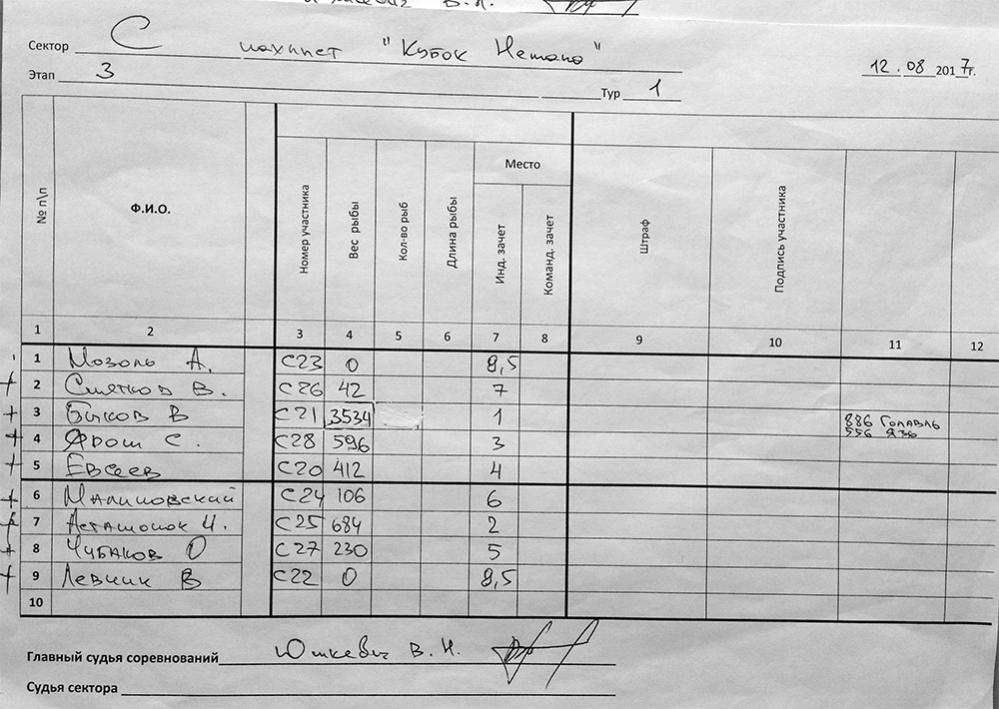 В.И.
Сектор С махипет "Кубок Немана"
Этап 3 Тур 1 12.08 2017г.
№ п\п Ф.И.О. Номер участника Вес рыбы Кол-во рыб Длина рыбы Место Инд. зачет Команд. зачет Штраф Подпись участника
1 2 3 4 5 6 7 8 9 10 11 12
1 Мозоль А. С23 0 8,5
2 Смятков В. С26 42 7
3 Быков В С21 3534 1 886 Голавль
556 язь
4 Ярош С. С28 596 3
5 Евсеев С20 412 4
6 Малиновский С24 106 6
7 Асташонок И. С25 684 2
8 Чубаков О С27 230 5
9 Левчик В С22 0 8,5
10
Главный судья соревнований Юшкевич В.И.
Судья сектора